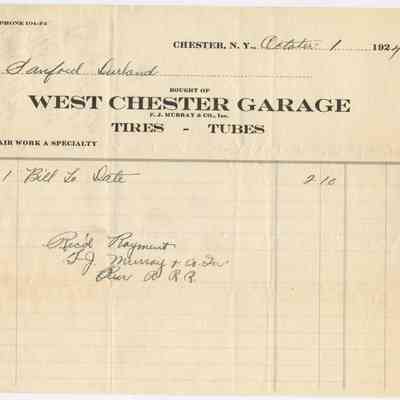 PHONE 104-F2
CHESTER, N. Y., October 1 1924
Sanford Durland
BOUGHT OF
WEST CHESTER GARAGE
F. J. MURRAY & CO., Inc.
TIRES - TUBES
AIR WORK A SPECIALTY
1 Bill To Date 2 10
Rec'd Payment
F. J. Murray & Co. Inc
Per R R